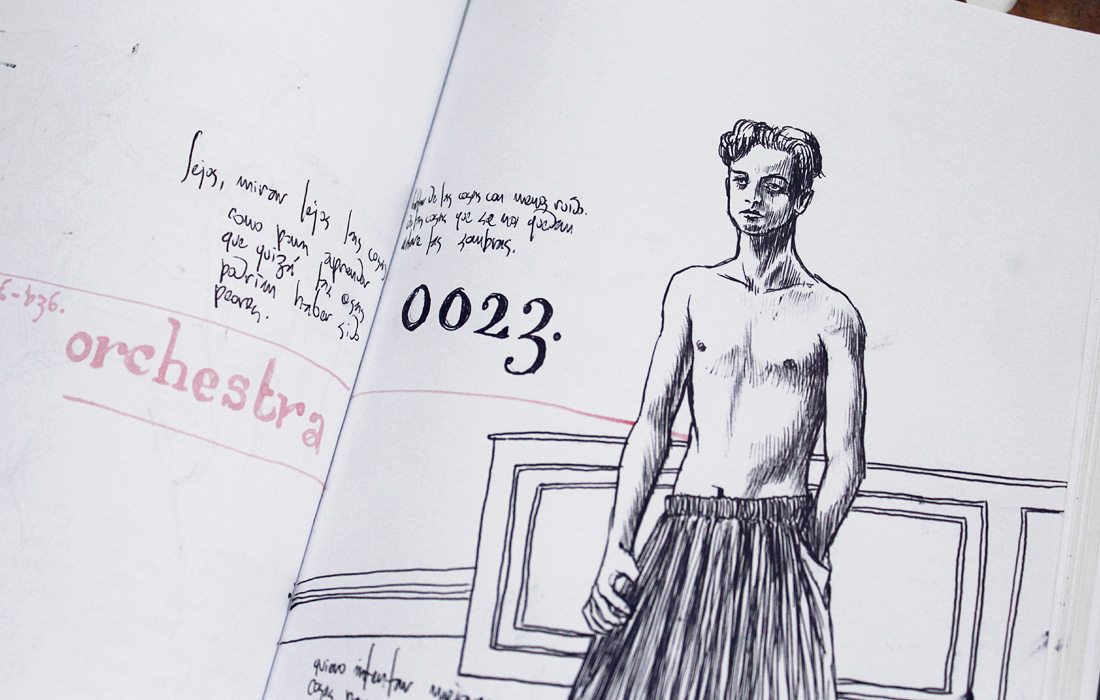 lejos, mirar lejos las cosas
como para aprender
que quizá las cosas
podrían haber sido
peores.
6-b36.
orchestra
de las cosas con menos ruido.
de las cosas que se nos quedan
entre las sombras.
0023.
quiero intentar
cosas